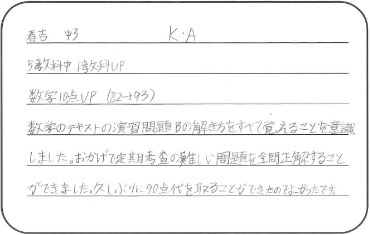 春吉 中3 K・A
5教科中1教科UP
数学10点UP (82→93)
数学のテキストの演習問題Bの解き方をすべて覚えることを意識
しました。おかげで定期考査の難しい問題を全問正解すること
ができました。久しぶりに90点代を取ることができたのでよかったです